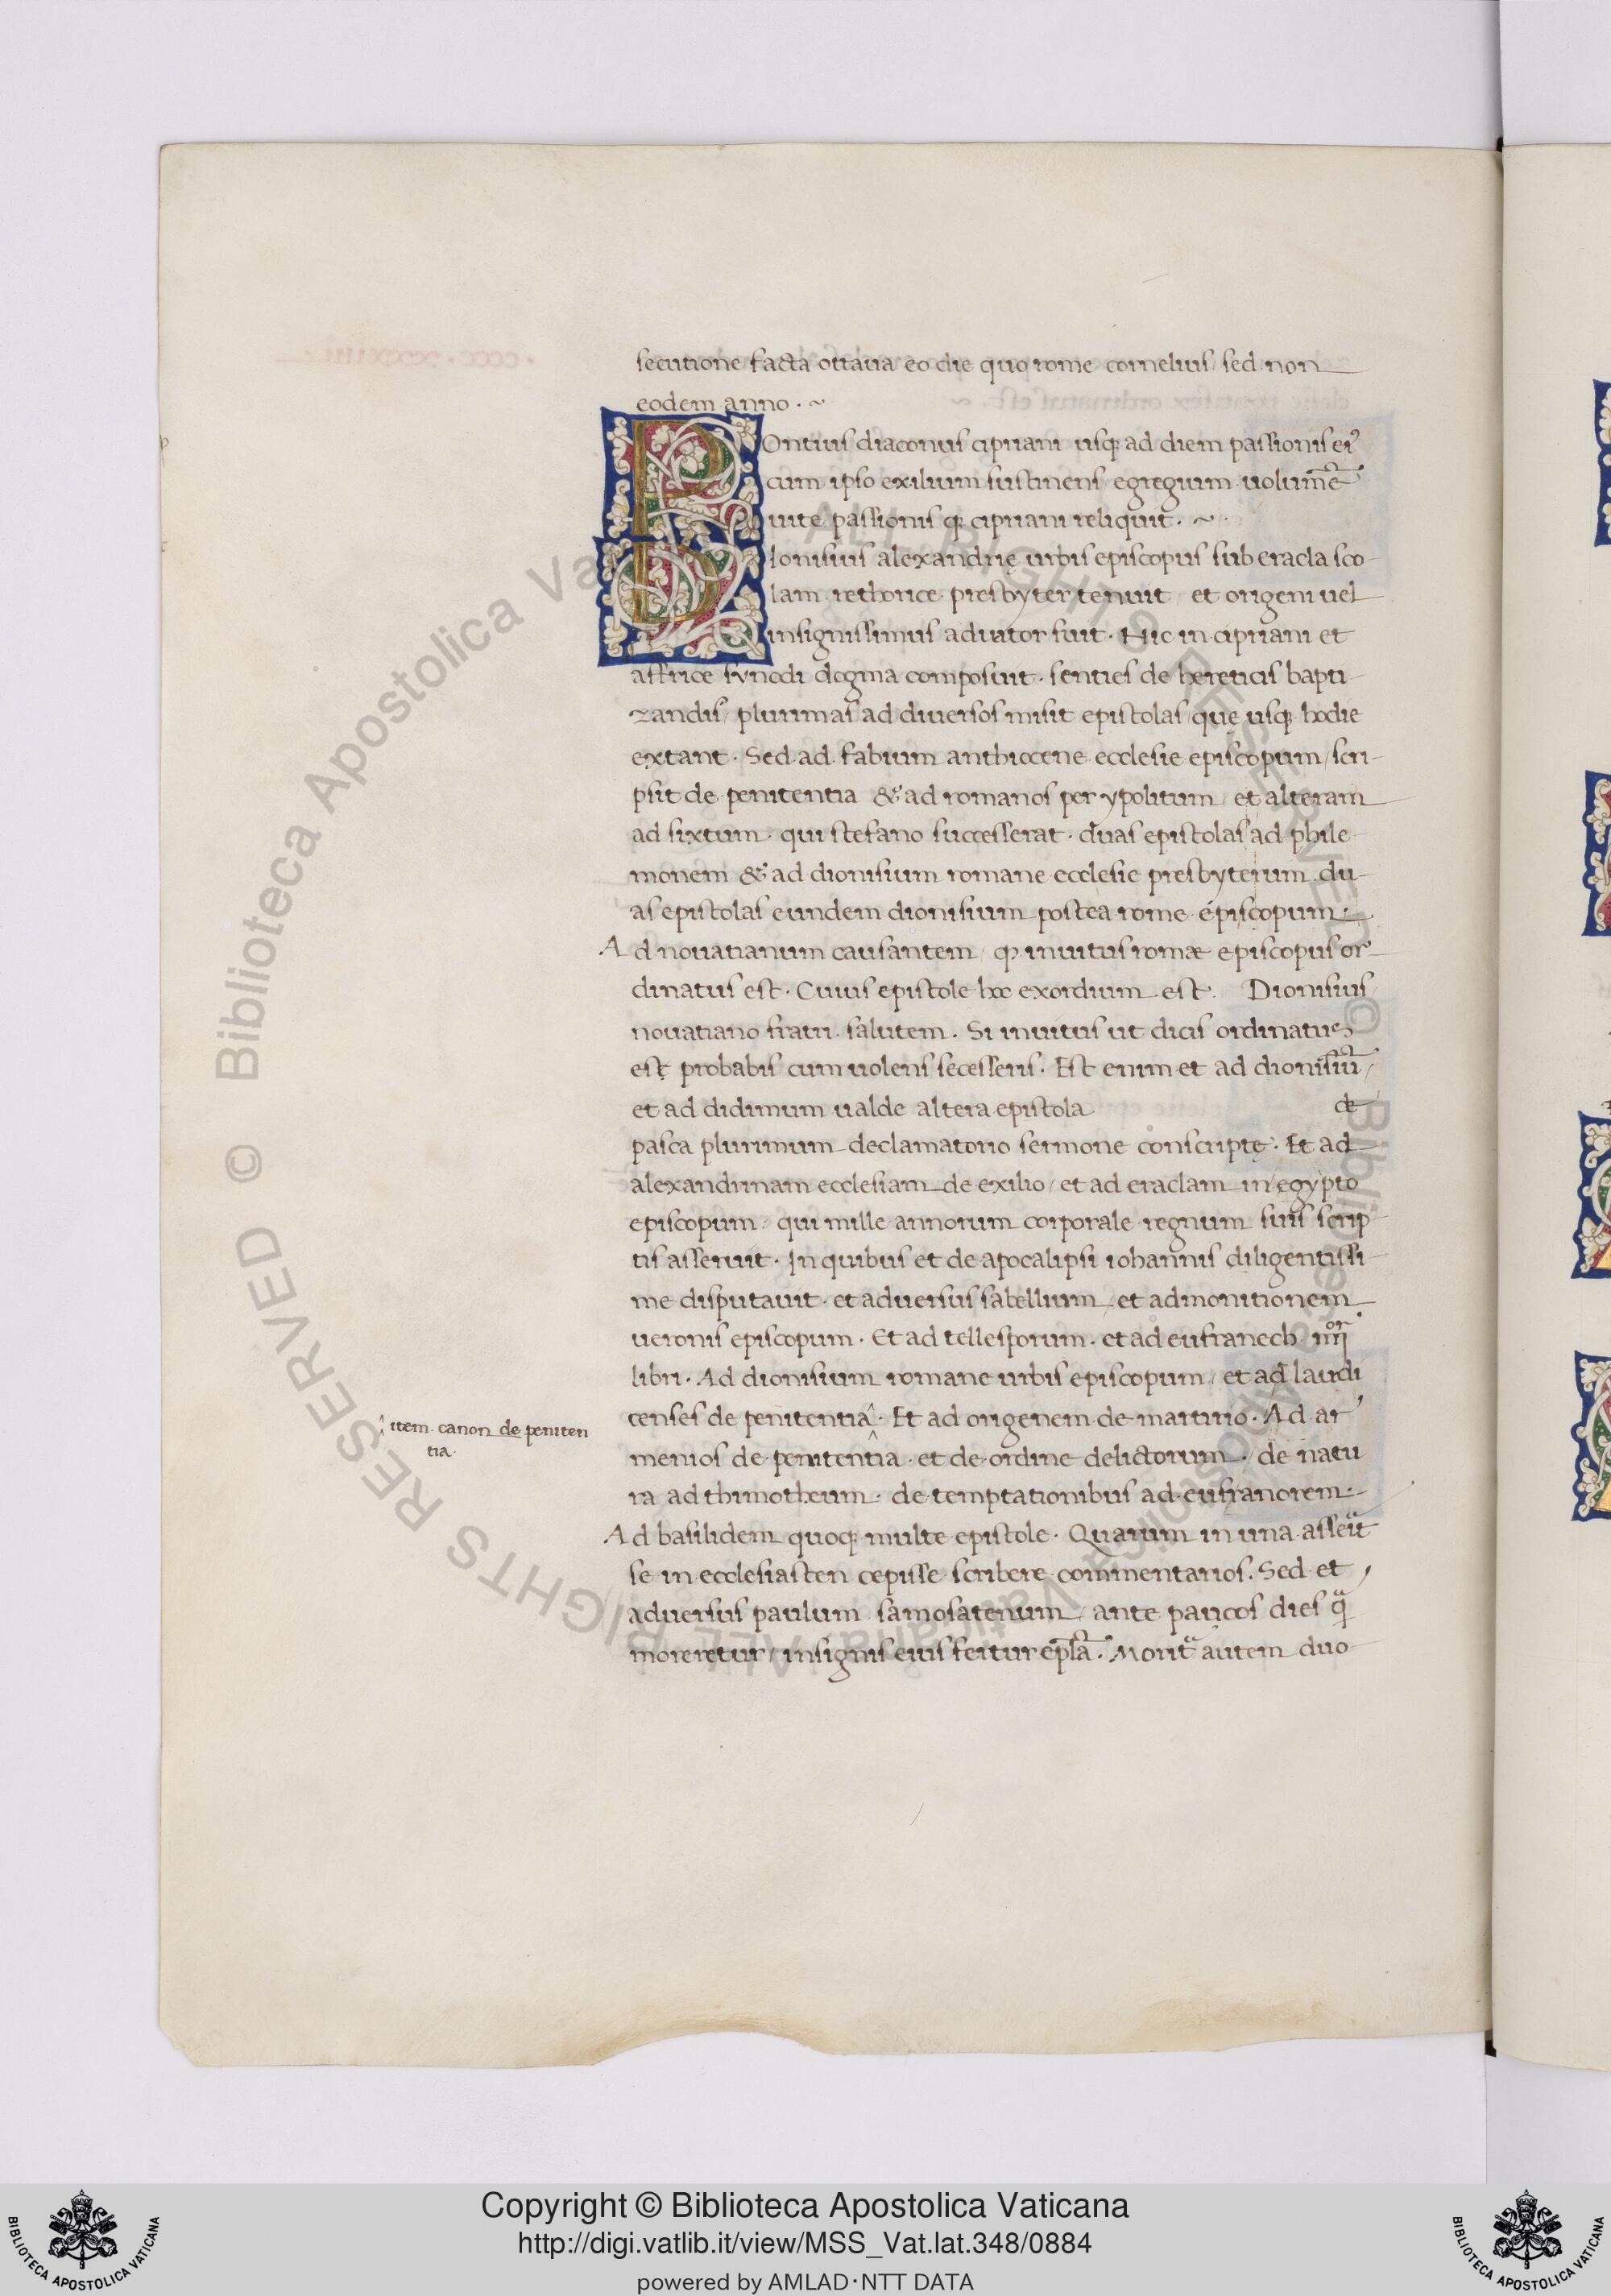 secutione facta ottaua eo die quo rome cornelius / sed non
eodem anno . ~
POntius diaconus cipriani usq; ad diem passionis ei⁹
cum ipso exilium sustinens egregium uolumē
uite passionis q; cipriani reliquit . ~
DIonisius alexandrię urbis episcopus sub eracla sco-
lam rethorice presbyter tenuit / et origeni uel
insignissimus adiutor fuit . Hic in cipriani et
affrice synodi dogma composuit . senties de hereticis bapti-
zandis / plurimas ad diuersos misit epistolas / quę usq; hodie
extant . Sed ad fabium anthiocene ecclesie episcopum / scri-
psit de penitentia & ad romanos per ypolitum / et alteram
ad sixtum . qui stefano successerat . duas epistolas ad phile-
monem & ad dionisium romane ecclesie presbyterum du-
as epistolas eundem dionisium postea rome episcopum .
Ad nouatianum causantem / ꝙ inuitus romæ episcopus or-
dinatus est . Cuius epistole hoc exordium est . Dionisius
nouatiano fratri salutem . Si inuitus ut dicis ordinatus
est probabis cum uolens secesseris . Est enim et ad dionisiū /
et ad didimum ualde altera epistola de
pasca plurimum declamatorio sermone conscriptę . Et ad
alexandrinam ecclesiam de exilio / et ad eraclam in egypto
episcopum . qui mille annorum corporale regnum suis scrip-
tis asseruit . In quibus et de apocalipsi iohannis diligentissi-
me disputauit . et aduersus sabellium / et admonitionem
ueronis episcopum . Et ad tellesporum . et ad eufranech . iiiiºʳ
libri . Ad dionisium romane urbis episcopum / et ad laudi
censes de penitentia ^ . Et ad origenem de martirio . Ad ar-
menios de penitentia . et de ordine delictorum . / de natu
ra ad thimotheum . de temptationibus ad eufranorem .
Ad basilidem quoq; multe epistole . Quarum in una asserit
se in ecclesiasten cepisse scribere commentarios . Sed et /
aduersus paulum samosatenum / ante paucos dies qᵃ
moreretur / insignis eius fertur epl̄a . Moritᵃ autem duo
^ item canon de peniten
tia .
© Biblioteca Apostolica Vaticana. ALL RIGHTS RESERVED
© Biblioteca Apostolica Vaticana. ALL RIGHTS RESERVED
BIBLIOTECA APOSTOLICA VATICANA
Copyright © Biblioteca Apostolica Vaticana
http://digi.vatlib.it/view/MSS_Vat.lat.348/0884
powered by AMLAD·NTT DATA
BIBLIOTECA APOSTOLICA VATICANA